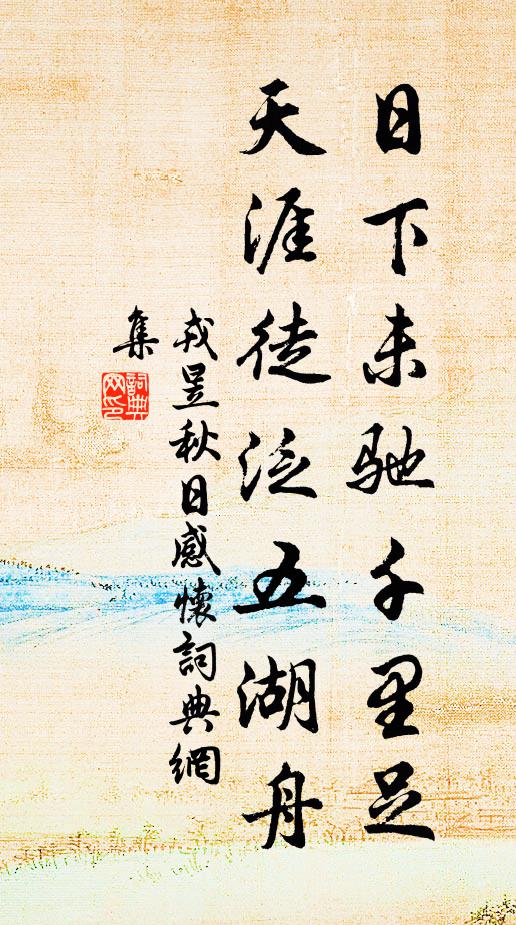 日下未馳千里足
天涯徒泛五湖舟
戎昱秋日感懷詞典網
集
詞典
网印